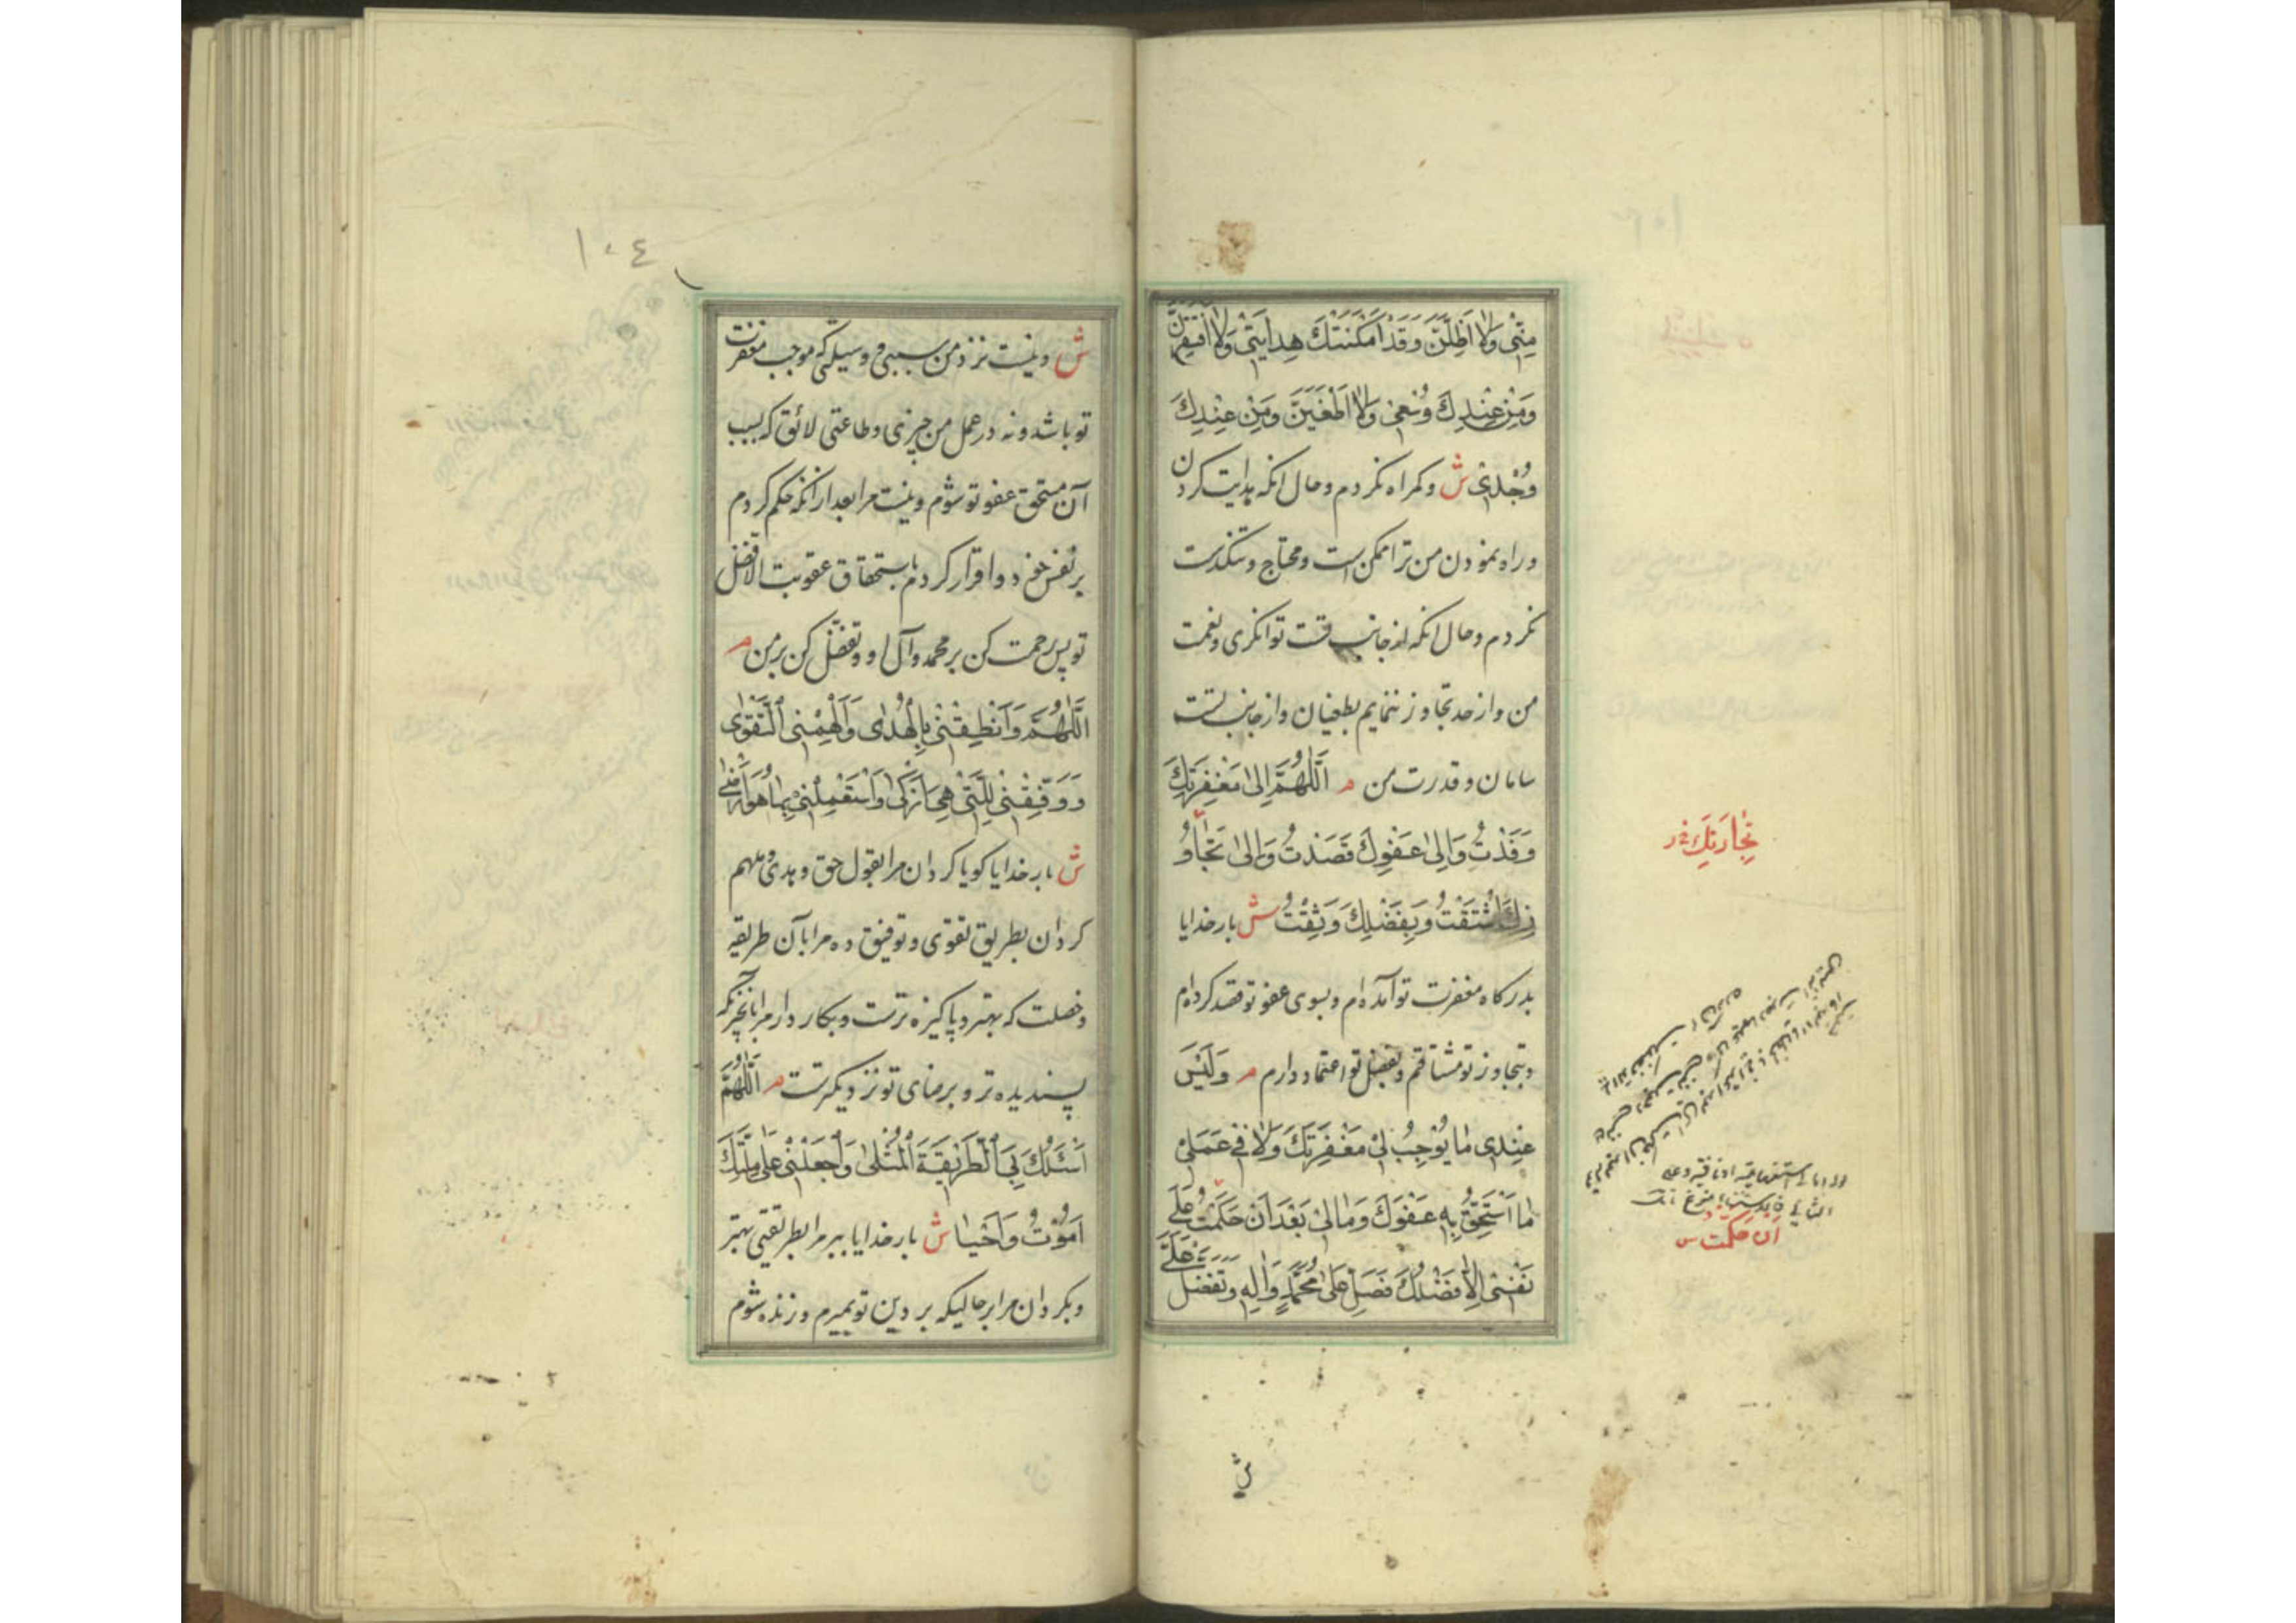 مِنّي وَلا اَضِلَّنَّ وَقَدْ اَمْكَنَتْكَ هِدايَتي وَلا اَفْتَقِرَنَّ
وَمِنْ عِنْدِكَ وُسْعي وَلا اَطْغَيَنَّ وَمِنْ عِنْدِكَ
وُجْدي ش وكمراه نكردم وحال انكه هدايت كردن
وراه نمودن من ترا ممكن است ومحتاج وتنكدست
نكردم وحال انكه از جانب تست توانكرى ونعمت
من واز حد تجاوز ننمايم بطغيان واز جانب تست
سامان و قدرت من م اَللّهُمَّ اِلى مَغْفِرَتِكَ
وَفَدْتُ وَاِلى عَفْوِكَ قَصَدْتُ وَاِلى تَجاوُ
زِكَ اشْتَقْتُ وَبِفَضْلِكَ وَثِقْتُ ش بار خدايا
بدركاه مغفرت تو آمده ام وبسوى عفو تو قصد كرده ام
وبتجاوز تو مشتاقم وبفضل تو اعتماد دارم م وَلَيْسَ
عِنْدي ما يُوجِبُ لي مَغْفِرَتَكَ وَلا في عَمَلي
ما اَسْتَحِقُّ بِهِ عَفْوَكَ وَمالي بَعْدَ اَنْ حَكَمْتُ عَلى
نَفْسي اِلّا فَضْلُكَ فَصَلِّ عَلى مُحَمَّدٍ وَالِهِ وَتَفَضَّلْ عَلَيَّ
تَجاوُزِكَ
ان حكمت س
ش
١٠٤
ش ونيست نزد من سببى و وسيلۀ كه موجب مغفرت
تو باشد ونه در عمل من چيزى وطاعتى لائق كه بسبب
آن مستحق عفو تو شوم ونيست مرا بعد از انكه حكم كردم
بر نفس خود واقرار كردم باستحقاق عقوبت الا فضل
تو پس رحمت كن بر محمد وآل او وتفضّل كن بر من م
اَللّهُمَّ وَاَنْطِقْني بِالْهُدى وَاَلْهِمْنِي التَّقْوى
وَ وَفِّقْني لِلَّتي هِيَ اَزْكى وَاسْتَعْمِلْني بِما هُوَ اَرْضى
ش بار خدايا كويا كردان مرا بقول حق وهدى وملهم
كردان بطريق تقوى وتوفيق ده مرا بآن طريقه
وخصلت كه بهتر وپاكيزه ترست وبكار دار مرا بآنچيز كه
پسنديده تر وبرضاى تو نزديكترست م اَللّهُمَّ
اسْلُكْ بِيَ الطَّريقَةَ الْمُثْلى وَاجْعَلْني عَلى مِلَّتِكَ
اَمُوتُ وَاَحْيا ش بار خدايا ببر مرا بطريقتى بهتر
وبكردان مرا بر حاليكه بر دين تو بميرم وزنده شوم